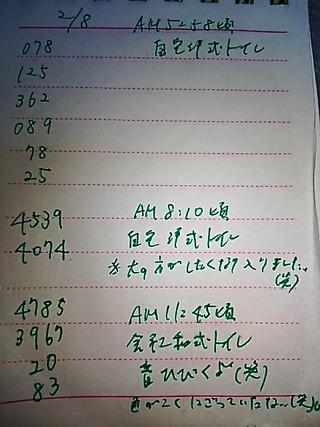 2/8 AM5:58頃
078 自宅洋式トイレ
125
362
089
78
25
4539 AM 8:10頃
4074 自宅洋式トイレ
※大の方がしたくなり入りました...
(笑)
4785 AM11:45頃
3967 会社和式トイレ
20 音ひびくよ(笑)
83 色がこくにごっていたな...(笑)